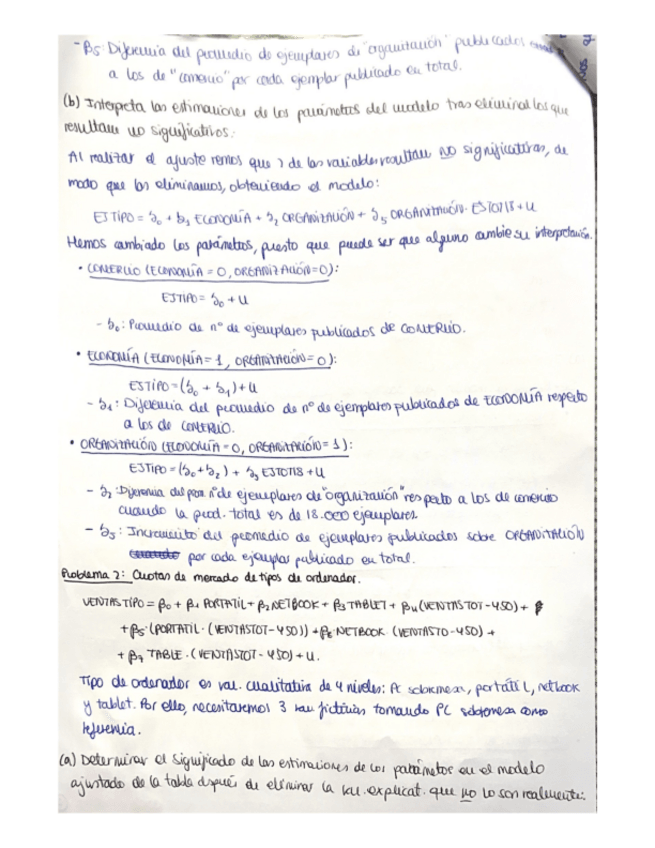 - β5: Diferencia del promedio de ejemplares de "organización" publicados
a los de "comercio" por cada ejemplar publicado en total.
(b) Interpreta las estimaciones de los parámetros del modelo tras eliminar los que
resultan no significativos.
Al realizar el ajuste vemos que 2 de las variables resultan NO significativas, de
modo que las eliminamos, obteniendo el modelo:
EJTIPO = δ0 + δ1 ECONOMÍA + δ2 ORGANIZACIÓN + δ3 ORGANIZACIÓN · EJTOT18 + U
Hemos cambiado los parámetros, puesto que puede ser que alguno cambie su interpretación.
• COMERCIO (ECONOMÍA = 0, ORGANIZACIÓN = 0):
EJTIPO = δ0 + U
- δ0: Promedio de nº de ejemplares publicados de COMERCIO.
• ECONOMÍA (ECONOMÍA = 1, ORGANIZACIÓN = 0):
EJTIPO = (δ0 + δ1) + U
- δ1: Diferencia del promedio de nº de ejemplares publicados de ECONOMÍA respecto
a los de COMERCIO.
• ORGANIZACIÓN (ECONOMÍA = 0, ORGANIZACIÓN = 1):
EJTIPO = (δ0 + δ2) + δ3 EJTOT18 + U
- δ2: Diferencia del prom. nº de ejemplares de "organización" respecto a los de comercio
cuando la prod. total es de 18.000 ejemplares.
- δ3: Incremento del promedio de ejemplares publicados sobre ORGANIZACIÓN
por cada ejemplar publicado en total.
Problema 2: Cuotas de mercado de tipos de ordenador.
VENTASTIPO = β0 + β1 PORTATIL + β2 NETBOOK + β3 TABLET + β4 (VENTASTOT - 450) +
+ β5 · (PORTATIL · (VENTASTOT - 450)) + β6 NETBOOK · (VENTASTO - 450) +
+ β7 TABLE · (VENTASTOT - 450) + U.
Tipo de ordenador es var. cualitativa de 4 niveles: PC sobremesa, portátil, netbook
y tablet. Por ello, necesitaremos 3 var ficticias tomando PC sobremesa como
referencia.
(a) Determinar el significado de las estimaciones de los parámetros en el modelo
ajustado de la tabla después de eliminar la var. explicat. que no lo son realmente: